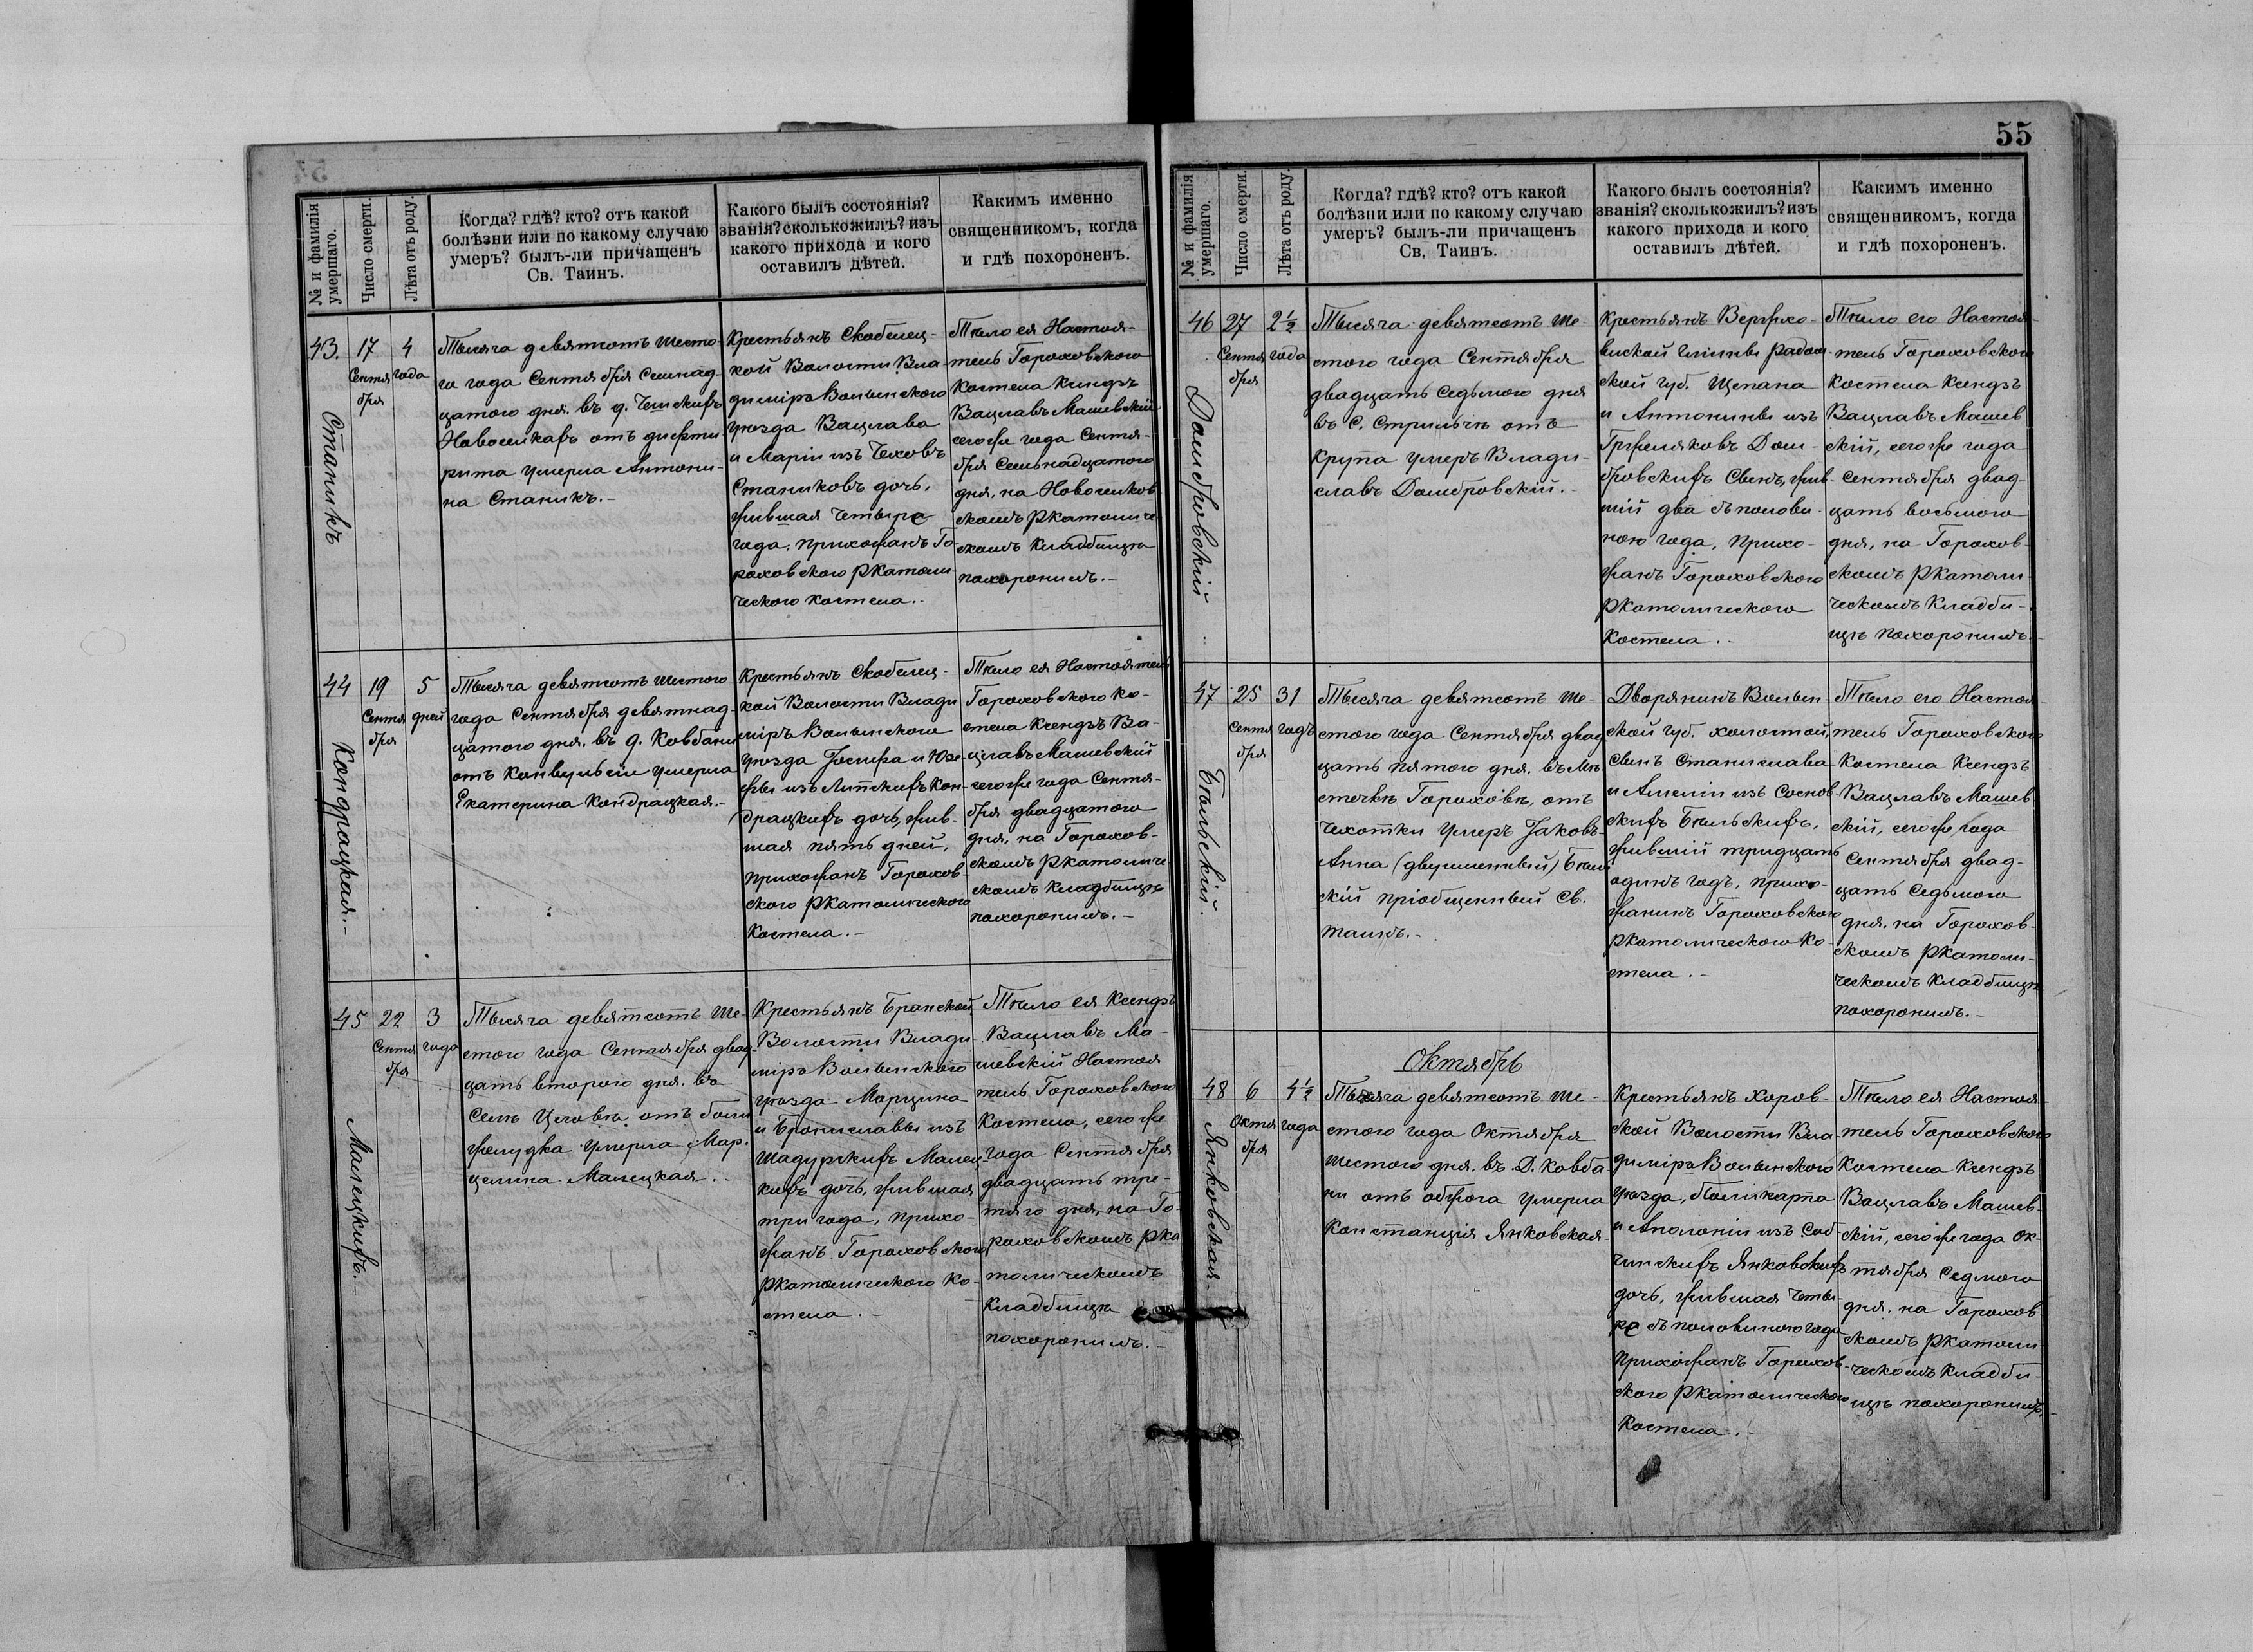 55
№ и фамилія умершаго.
Число смерти.
Лѣта отъ роду.
Когда? гдѣ? кто? отъ какой
болѣзни или по какому случаю
умеръ? былъ-ли причащенъ
Св. Таинъ.
Какого былъ состоянія?
званія? сколько жилъ? изъ
какого прихода и кого
оставилъ дѣтей.
Какимъ именно
священникомъ, когда
и гдѣ похороненъ.
43.
Станикъ
17
Сентя
бря
4
года
Тысяча девятсотъ шесто-
го года Сентября Семнад-
цатого дня. въ д. Чешскихъ
Новоселкахъ отъ дифте
рита умерла Антони-
на Станикъ.-
Крестьянъ Скобелец-
кой Волости Вла-
диміръ Волынского
уѣзда Вацлава
и Маріи изъ Чеховъ
Станиковъ дочь,
жившая Четыре
года, прихожанъ Го-
роховского Ркатоли-
ческого костела.-
Тѣло ея Настоя-
тель Гороховского
Костела Ксендзъ
Вацлавъ Машевскій
сего же года Сентя-
бря Семьнадцатого
дня, на Новоселков
скомъ Ркатоличе
скомъ Кладбищѣ
похоронилъ.-
44
Кондрацкая.-
19
Сентя
бря
5
дней
Тысяча девятсотъ шестого
года Сентября девятнад-
цатого дня. въ д. Ковбани
отъ Конвульсіи умерла
Екатерина Кондрацкая.-
Крестьянъ Скобелец-
кой Волости Влади
міръ Волынского
уѣзда Іосифа и Юзе
фы изъ Липскихъ Кон-
драцкихъ дочь, жив-
шая пять дней,
прихожанъ Горохов-
ского Ркатолического
Костела.-
Тѣло ея Настоятель
Гороховского Ко-
стела Ксендзъ Ва-
цлавъ Машевскій
сего же года Сентя-
бря двадцатого
дня, на Горохов-
скомъ Ркатоличе
скомъ Кладбищѣ
похоронилъ.-
45
Малецкихъ.-
22
Сентя
бря
3
года
Тысяча девятсотъ ше-
стого года Сентября двад-
цать второго дня. въ
Селѣ Цеговѣ отъ боли
желудка умерла Мар-
целина Малецкая.-
Крестьянъ Бранской
Волости Влади-
міръ Волынского
уѣзда Марцина
и Брониславы изъ
Шадурскихъ Малец-
кихъ дочь, жившая
три года, прихо-
жанъ Гороховского
Ркатолического Ко-
стела.-
Тѣло ея Ксендзъ
Вацлавъ Ма-
шевскій Настоя
тель Гороховского
Костела, сего же
года Сентября
двадцать тре-
тяго дня, на Го-
роховскомъ Рка
толическомъ
Кладбищѣ
похоронилъ.-
№ и фамилія умершаго.
Число смерти.
Лѣта отъ роду.
Когда? гдѣ? кто? отъ какой
болѣзни или по какому случаю
умеръ? былъ-ли причащенъ
Св. Таинъ.
Какого былъ состоянія?
званія? сколько жилъ? изъ
какого прихода и кого
оставилъ дѣтей.
Какимъ именно
священникомъ, когда
и гдѣ похороненъ.
46
Домбровскій
27
Сентя
бря
2½
года
Тысяча девятсотъ ше-
стого года Сентября
двадцать седьмого дня
въ с. Стрильчѣ отъ
Крупа умеръ Влади-
славъ Домбровскій.-
Крестьянъ Вержхо-
виской Гмины Радом-
ской губ. Щепана
и Антонины изъ
Гржеляковъ Дом-
бровскихъ Сынъ, жив-
шій два съ полови-
ною года, прихо-
жанъ Гороховского
Ркатолического
Костела.-
Тѣло его Настоя-
тель Гороховского
Костела Ксендзъ
Вацлавъ Машев
скій, сего же года
Сентября двад-
цать восьмого
дня, на Горохов-
скомъ Ркатоли-
ческомъ Кладби-
щѣ похоронилъ.-
47
Бѣльскій.
25
Сентя
бря
31
годъ
Тысяча девятсотъ ше-
стого года Сентября двад-
цать пятого дня. въ Мѣ-
стечкѣ Гороховѣ, отъ
Чахотки умеръ Іаковъ-
Анна (двуименный) Бѣль
скій пріобщенный Св.
таинъ.-
Дворянинъ Волын-
ской губ. холостой,
Сынъ Станислава
и Амеліи изъ Соснов-
скихъ Бѣльскихъ,
жившій тридцать
одинъ годъ, прихо-
жанинъ Гороховского
Ркатолического Ко-
стела.-
Тѣло его Настоя-
тель Гороховского
Костела Ксендзъ
Вацлавъ Машев-
скій, сего же года
Сентября двад-
цать Седьмого
дня, на Горохов-
скомъ Ркатоли-
ческомъ Кладбищѣ
похоронилъ.-
Октябрь
48
Янковская
6
Октя
бря
4½
года
Тысяча девятсотъ ше-
стого года Октября
шестого дня. въ Д. Ковба
ни отъ обжога умерла
Констанція Янковская-
Крестьянъ Хоров-
ской Волости Вла-
диміръ Волынского
уѣзда, Поликарпа
и Аполоніи изъ Саб-
чинскихъ Янковскихъ
дочь, жившая Четы-
ре съ половиною года
прихожанъ Горохов-
ского Ркатолического
Костела.-
Тѣло ея Настоя-
тель Гороховского
Костела Ксендзъ
Вацлавъ Машев-
скій, сего же года Ок-
тября Седмого
дня, на Горохов
скомъ Ркатоли-
ческомъ Кладби-
щѣ похоронилъ.-